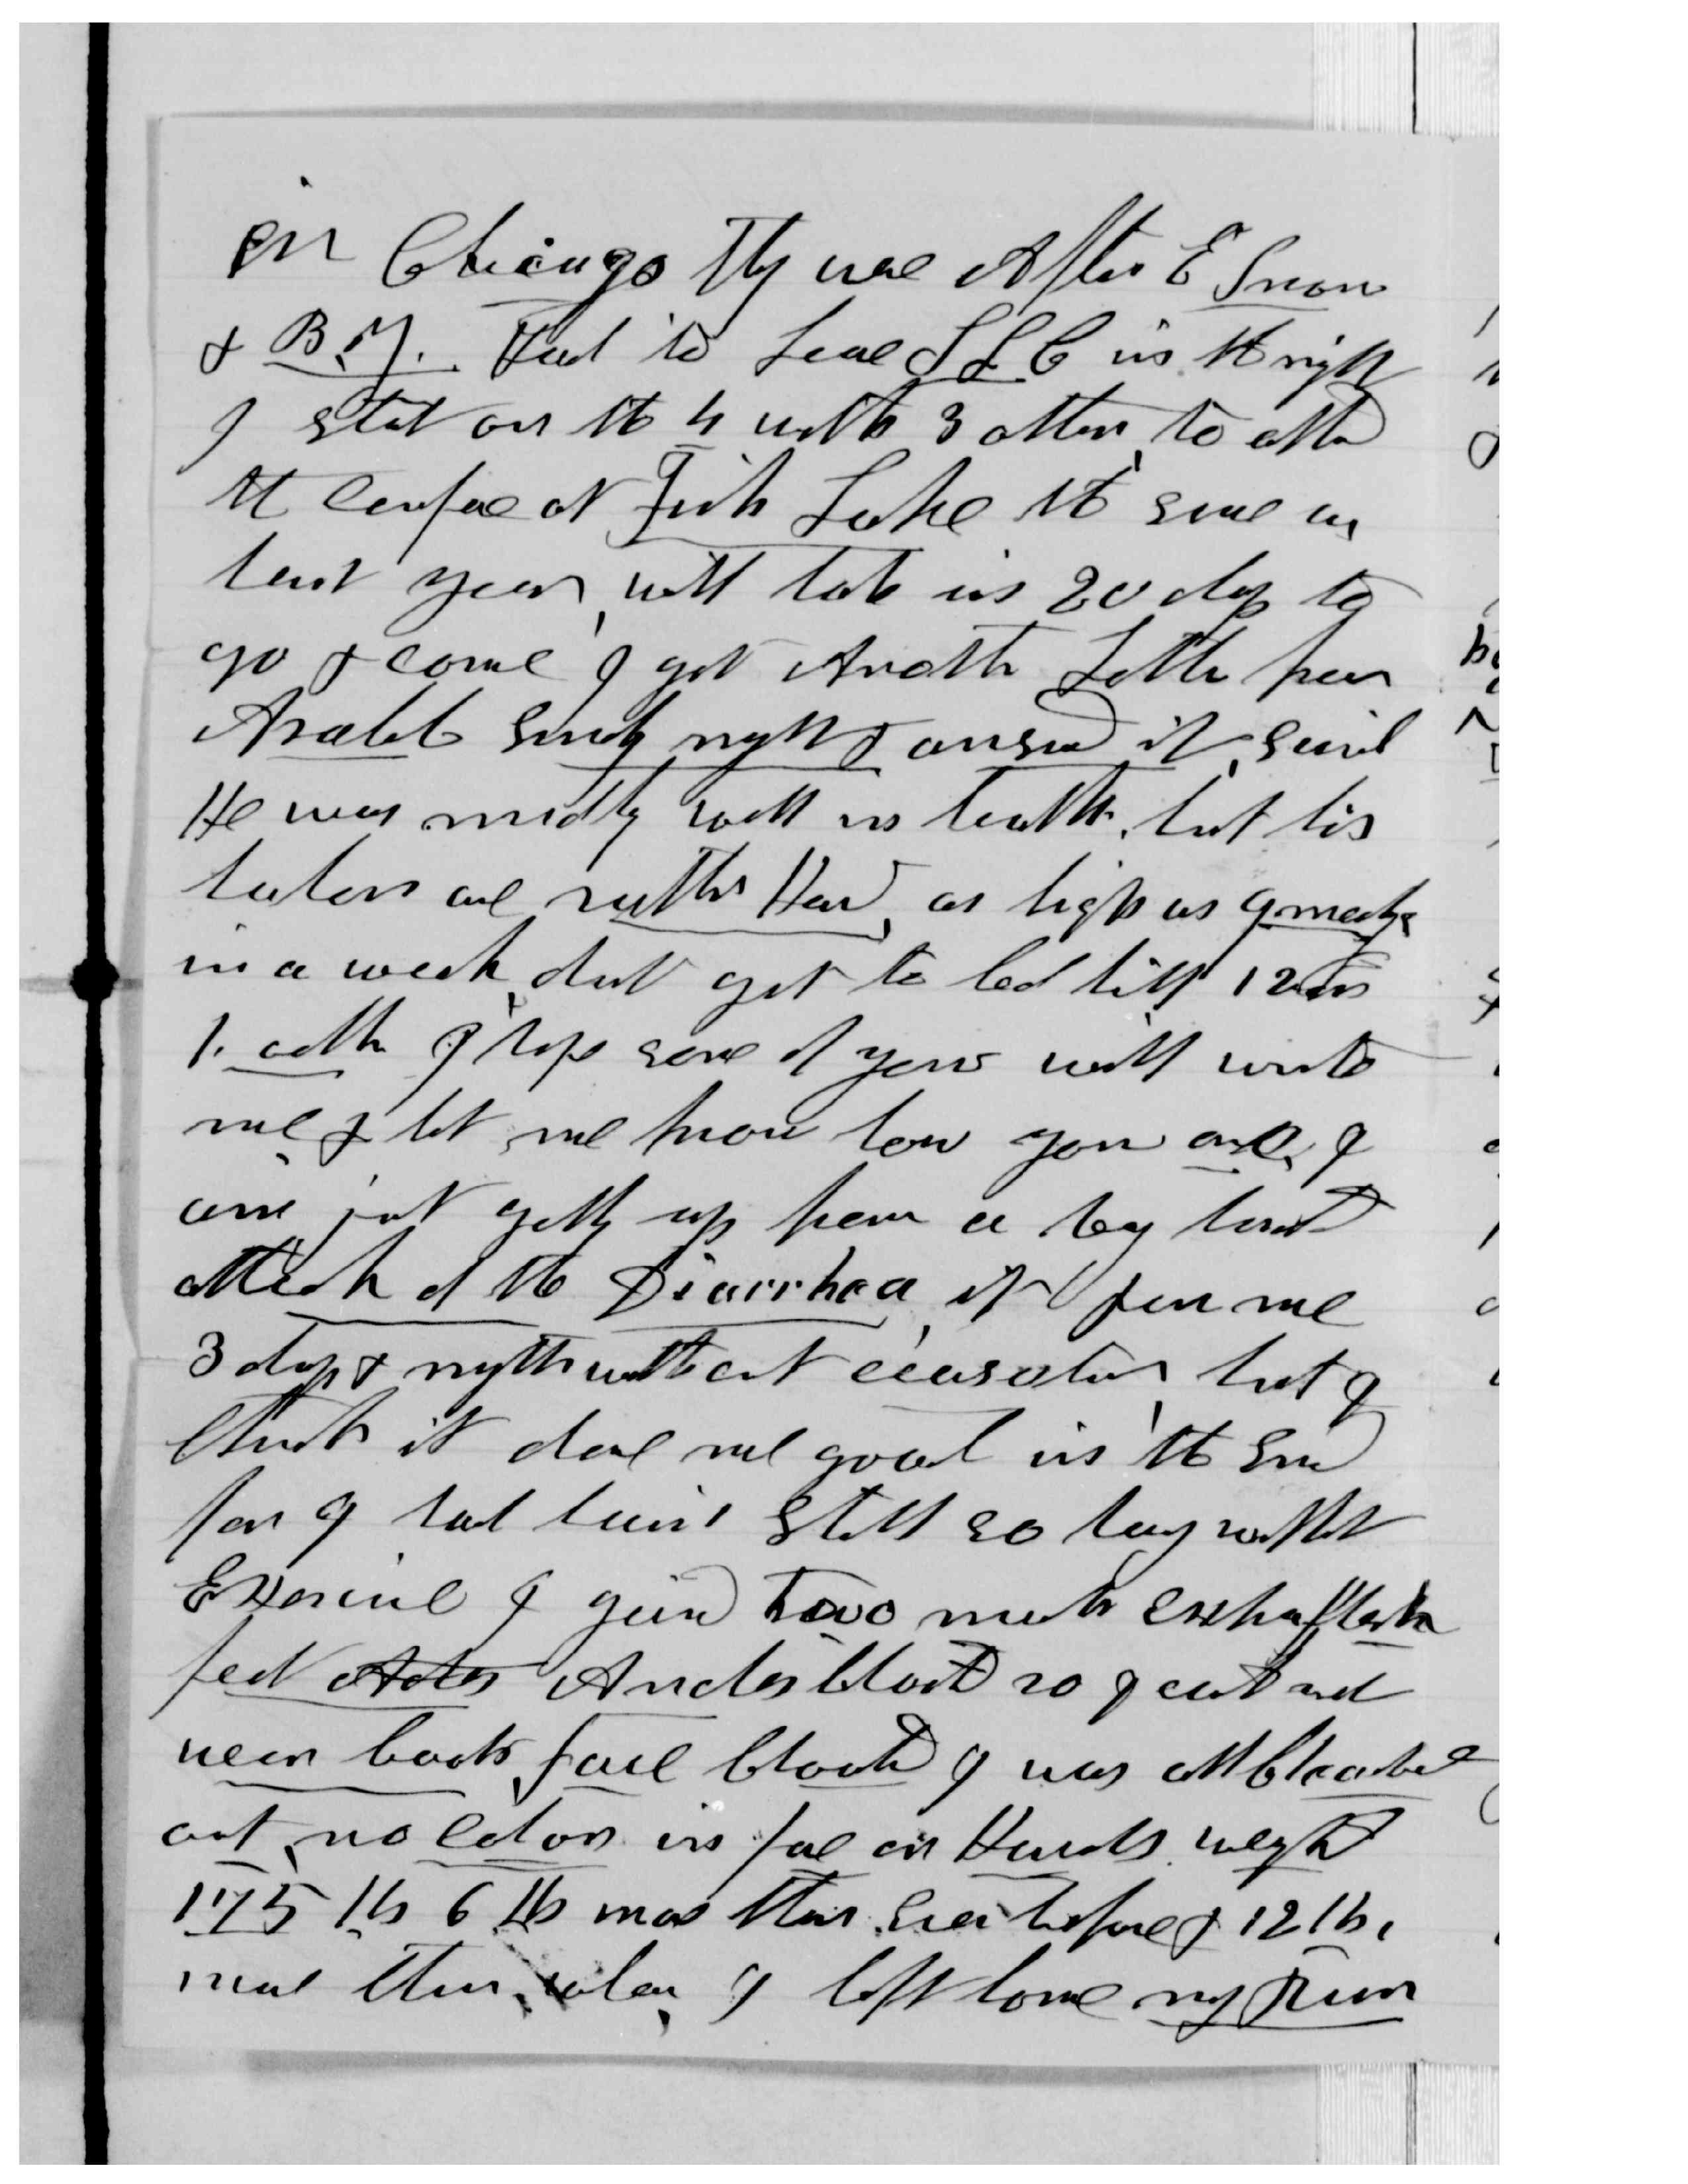 in Chicago They ware After E Snow
& B.Y. Had to Leave SLC in the night
I start on the 4 with 3 others to attend
the Conference at Fish Lake the same as
last year, will take us 20 days to
go & come I got Another Letter from
Asahel Sunday night & answered it, said
He was midly well in health, but his
labors are rather Hard, as high as 9 meetings
in a week, dont get to bed till 12 or
1. oclk I hope some of you will write
me & let me know how you are, I
am just getting up from a long hard
attack of the Diarrhea, it run me
3 days & nights without ceasation, but I
think it done me good in the End
for I had laid Still so long without
Exercise I gained two much
feet Ancles bloated so I could not
wear boots, face bloated I was all bleached
out, no color in face or Hands. weighed
175 lbs 6 lbs more than Ever before & 12 lbs.
more than when I left home my Run